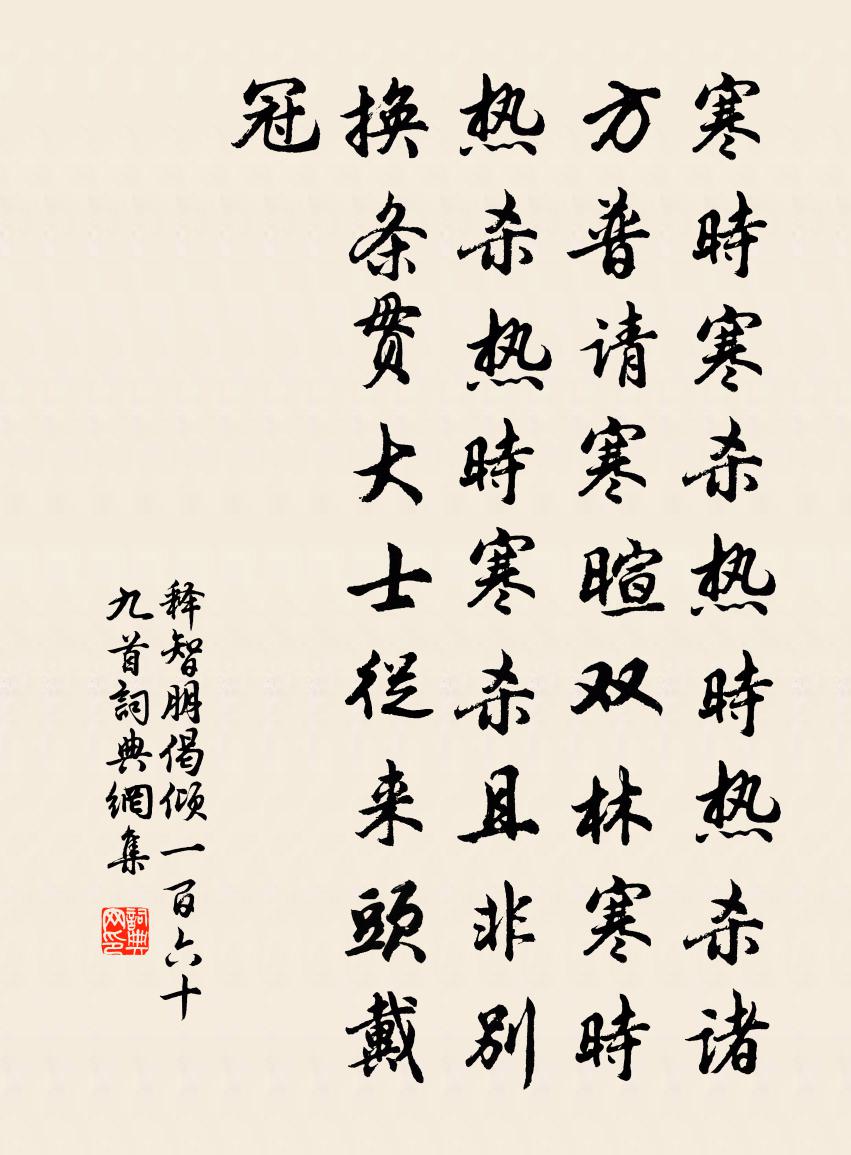 寒時寒杀热時热杀诸
方普请寒暄双林寒時
热杀热時寒杀且非别
换条贯大士從来頭戴
冠
释智朋偈倾一百六十
九首詞典網集
詞典
网印